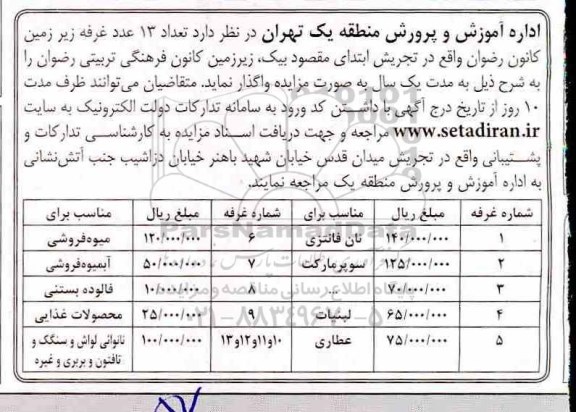 اداره آموزش و پرورش منطقه یک تهران در نظر دارد تعداد ۱۳ عدد غرفه زیر زمین
کانون رضوان واقع در تجریش ابتدای مقصود بیک، زیرزمین کانون فرهنگی تربیتی رضوان را
به شرح ذیل به مدت یک سال به صورت مزایده واگذار نماید. متقاضیان می‌توانند ظرف مدت
۱۰ روز از تاریخ درج آگهی با داشتن کد ورود به سامانه تدارکات دولت الکترونیک به سایت
www.setadiran.ir مراجعه و جهت دریافت اسناد مزایده به کارشناسی تدارکات و
پشتیبانی واقع در تجریش میدان قدس خیابان شهید باهنر خیابان دزاشیب جنب آتش‌نشانی
به اداره آموزش و پرورش منطقه یک مراجعه نمایند.
شماره غرفه مبلغ ریال مناسب برای شماره غرفه مبلغ ریال مناسب برای
۱ ۱۴۰/۰۰۰/۰۰۰ نان فانتزی ۶ ۱۲۰/۰۰۰/۰۰۰ میوه‌فروشی
۲ ۱۲۵/۰۰۰/۰۰۰ سوپرمارکت ۷ ۵۰/۰۰۰/۰۰۰ آبمیوه‌فروشی
۳ ۷۰/۰۰۰/۰۰۰ ۸ ۱۰/۰۰۰/۰۰۰ فالوده بستنی
۴ ۶۵/۰۰۰/۰۰۰ لبنیات ۹ ۲۵/۰۰۰/۰۰۰ محصولات غذایی
۵ ۷۵/۰۰۰/۰۰۰ عطاری ۱۰و۱۱و۱۲و۱۳ ۱۰۰/۰۰۰/۰۰۰ نانوائی لواش و سنگک و
تافتون و بربری و غیره
ParsNamadData
پایگاه اطلاع رسانی مناقصه و مزایده
۰۲۱-۸۸۳۴۹۶۷۰-۵